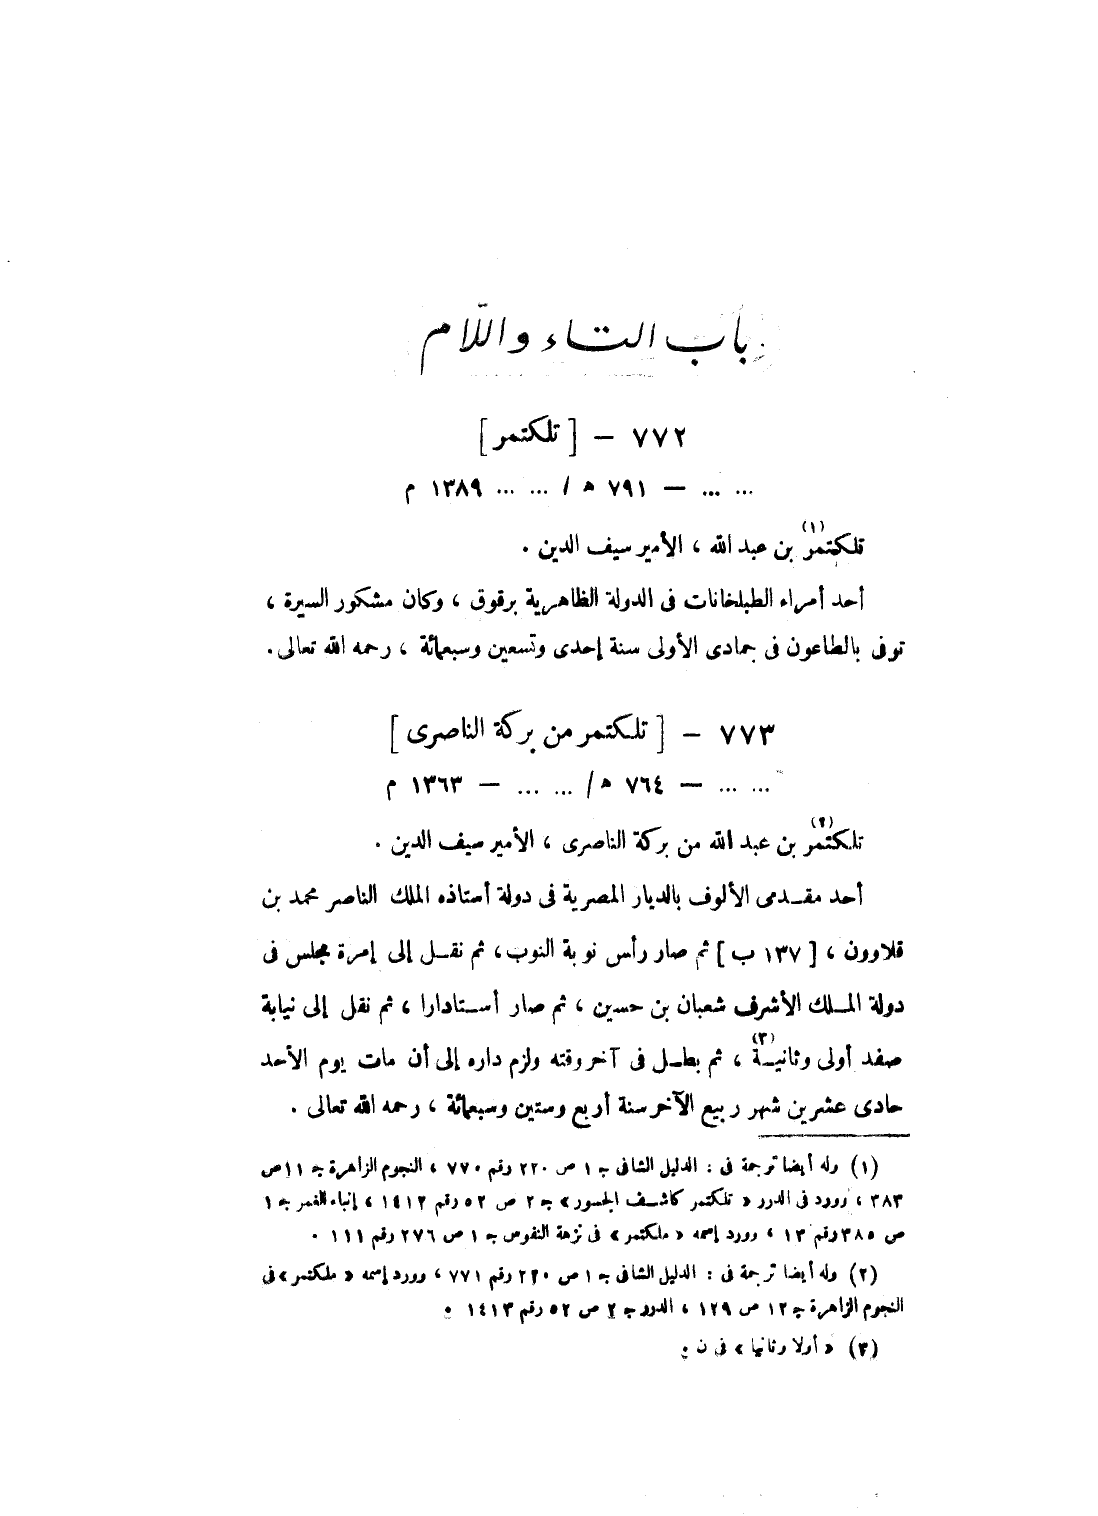 باب التاء واللّام
٧٧٢ – [ تلكتمر ]
... ... – ٧٩١ ه / ... ... ١٣٨٩ م
تلكتمر(١) بن عبد الله ، الأمير سيف الدين .
أحد أمراء الطبلخانات فى الدولة الظاهرية برقوق ، وكان مشكور السيرة ،
توفى بالطاعون فى جمادى الأولى سنة إحدى وتسعين وسبعمائة ، رحمه الله تعالى .
٧٧٣ – [ تلكتمر من بركة الناصرى ]
... ... – ٧٦٤ ه / ... ... – ١٣٦٣ م
تلكتمر(٢) بن عبد الله من بركة الناصرى ، الأمير سيف الدين .
أحد مقدمى الألوف بالديار المصرية فى دولة أستاذه الملك الناصر محمد بن
قلاوون ، [ ١٣٧ ب ] ثم صار رأس نوبة النوب ، ثم نقل إلى إمرة مجلس فى
دولة الملك الأشرف شعبان بن حسين ، ثم صار أستادارا ، ثم نقل إلى نيابة
صفد أولى وثانية(٣) ، ثم بطل فى آخر وقته ولزم داره إلى أن مات يوم الأحد
حادى عشرين شهر ربيع الآخر سنة أربع وستين وسبعمائة ، رحمه الله تعالى .
(١) وله أيضا ترجمة فى : الدليل الشافى ج ١ ص ٢٢٠ رقم ٧٧٠ ، النجوم الزاهرة ج ١١ ص
٣٨٣ ، وورد فى الدرر « تلكتمر كاشف الجسور » ج ٢ ص ٥٢ رقم ١٤١٢ ، إنباء الغمر ج ١
ص ٣٨٥ رقم ١٣ ، وورد إسمه « ملكتمر » فى نزهة النفوس ج ١ ص ٢٧٦ رقم ١١١ .
(٢) وله أيضا ترجمة فى : الدليل الشافى ج ١ ص ٢٢٠ رقم ٧٧١ ، وورد إسمه « ملكتمر » فى
النجوم الزاهرة ج ١٢ ص ١٢٩ ، الدرر ج ٢ ص ٥٢ رقم ١٤١٣ .
(٣) « أولا وثانيا » فى ن .